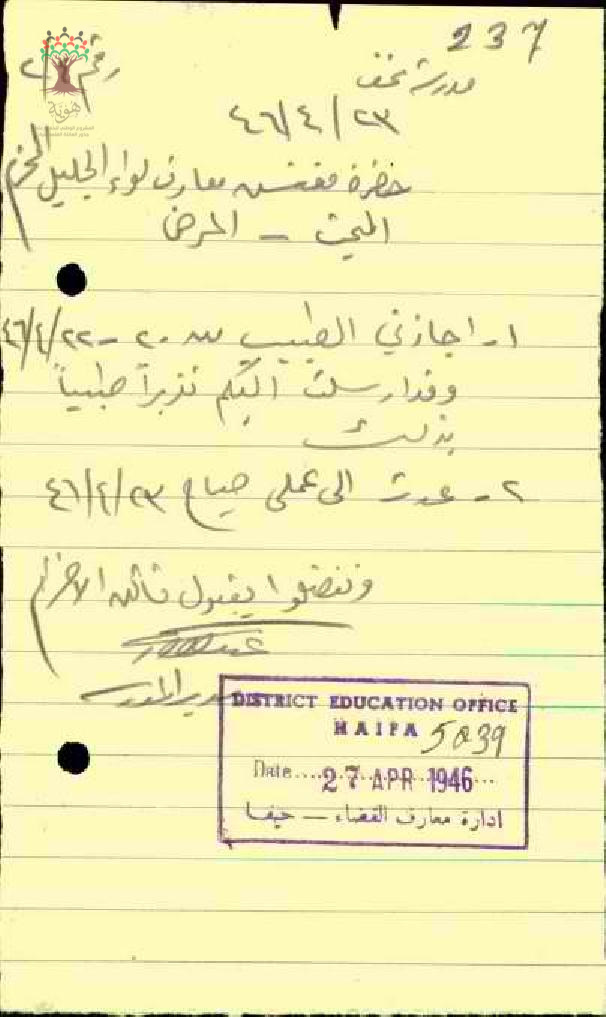 237
مدرسة
رقم
٢٣/٤/٤٦
حضرة مفتش معارف لواء الجليل المحترم
المبحث - المرض
١- اجازني الطبيب من ٢٠ - ٢٢/٤/٤٦
وقد ارسلت اليكم تقريراً طبياً
بذلك
٢- عدت الى عملي صباح ٢٣/٤/٤٦
وتفضلوا بقبول فائق الاحترام
مدير المدرسة
DISTRICT EDUCATION OFFICE
HAIFA 5039
Date 27 APR 1946
ادارة معارف القضاء — حيفا
هوية